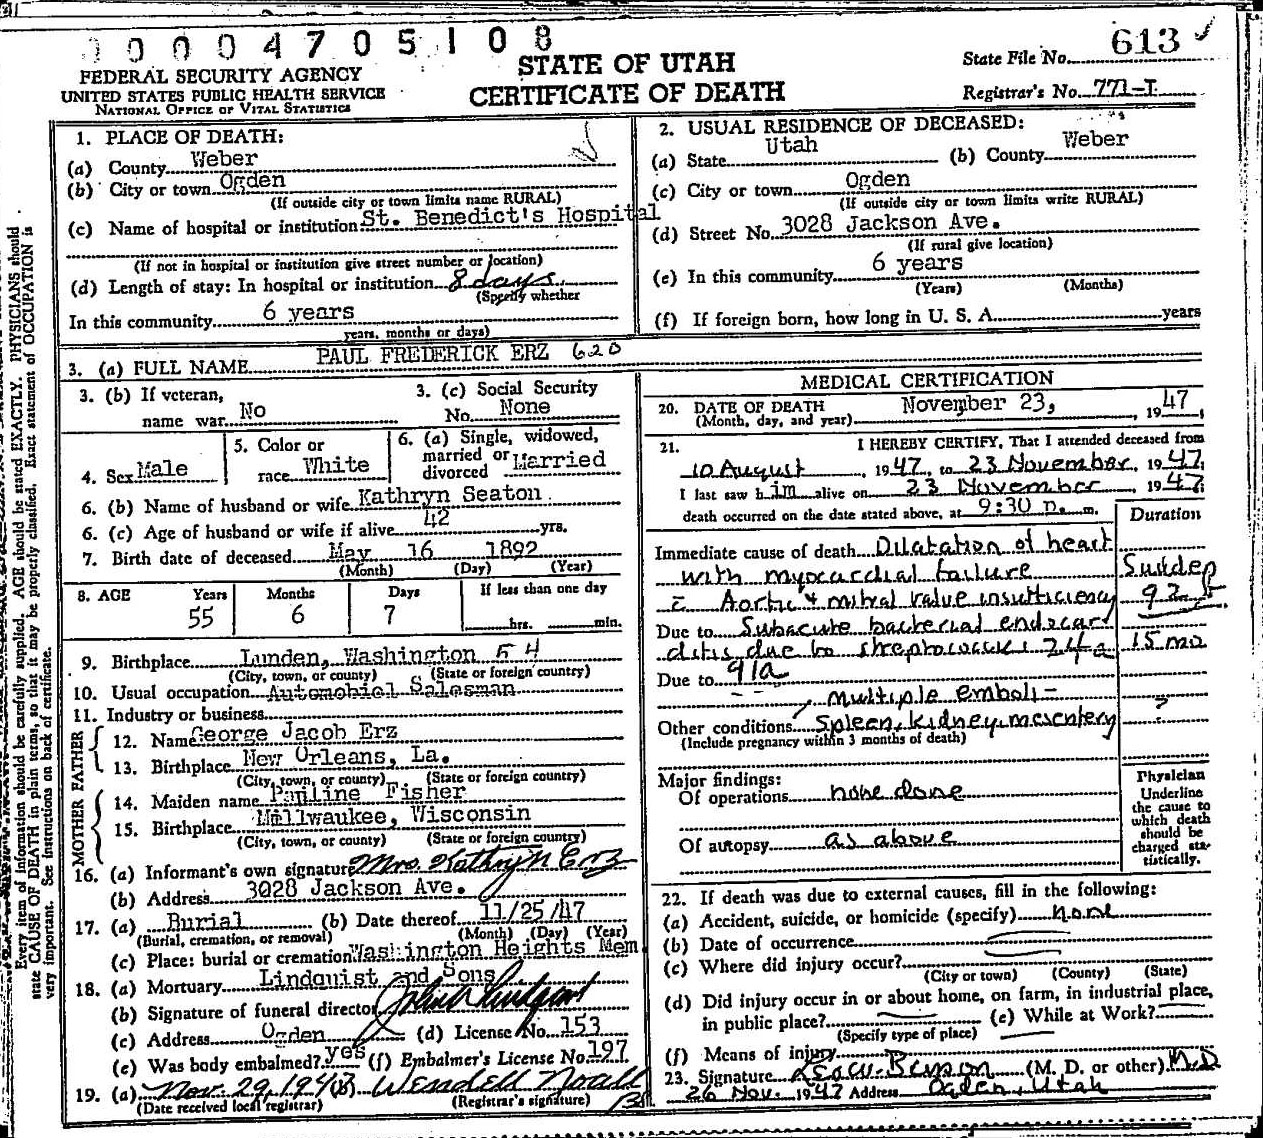 0 0 0 0 4 7 0 5 1 0 8
FEDERAL SECURITY AGENCY
UNITED STATES PUBLIC HEALTH SERVICE
NATIONAL OFFICE OF VITAL STATISTICS
STATE OF UTAH
CERTIFICATE OF DEATH
State File No. 613
Registrar's No. 771-I
1. PLACE OF DEATH:
(a) County Weber
(b) City or town Ogden
(If outside city or town limits name RURAL)
(c) Name of hospital or institution St. Benedict's Hospital
(If not in hospital or institution give street number or location)
(d) Length of stay: In hospital or institution 8 days
(Specify whether
In this community 6 years
years, months or days)
2. USUAL RESIDENCE OF DECEASED:
(a) State Utah (b) County Weber
(c) City or town Ogden
(If outside city or town limits write RURAL)
(d) Street No. 3028 Jackson Ave.
(If rural give location)
(e) In this community 6 years
(Years) (Months)
(f) If foreign born, how long in U. S. A. years
3. (a) FULL NAME PAUL FREDERICK ERZ 620
3. (b) If veteran,
name war No
3. (c) Social Security
No. None
4. Sex Male
5. Color or
race White
6. (a) Single, widowed,
married or
divorced Married
6. (b) Name of husband or wife Kathryn Seaton
6. (c) Age of husband or wife if alive 42 yrs.
7. Birth date of deceased May 16 1892
(Month) (Day) (Year)
8. AGE Years Months Days If less than one day
55 6 7 hrs. min.
9. Birthplace Lunden, Washington 54
(City, town, or county) (State or foreign country)
10. Usual occupation Automobiel Salesman
11. Industry or business
FATHER
12. Name George Jacob Erz
13. Birthplace New Orleans, La.
(City, town, or county) (State or foreign country)
MOTHER
14. Maiden name Pauline Fisher
15. Birthplace Millwaukee, Wisconsin
(City, town, or county) (State or foreign country)
16. (a) Informant's own signature Mrs. Kathryn Erz
(b) Address 3028 Jackson Ave.
17. (a) Burial (b) Date thereof 11/25/47
(Burial, cremation, or removal) (Month) (Day) (Year)
(c) Place: burial or cremation Washington Heights Mem
18. (a) Mortuary Lindquist and Sons
(b) Signature of funeral director
(c) Address Ogden (d) License No. 153
(e) Was body embalmed? yes (f) Embalmer's License No. 197
19. (a) Nov. 29, 1947 (b) Wendell Noall
(Date received local registrar) (Registrar's signature)
MEDICAL CERTIFICATION
20. DATE OF DEATH November 23, 1947
(Month, day, and year)
21. I HEREBY CERTIFY, That I attended deceased from
10 August, 1947, to 23 November, 1947;
I last saw him alive on 23 November 1947;
death occurred on the date stated above, at 9:30 p. m.
Duration
Immediate cause of death Dilatation of heart
with myocardial failure Sudden
c̄ Aortic & mitral valve insufficiency 92
Due to Subacute bacterial endocar
ditis due to streptococci 24a 15 mo
Due to 91a
Multiple emboli-
Other conditions Spleen, kidney, mesentery ?
(Include pregnancy within 3 months of death)
Major findings:
Of operations none done
Of autopsy as above
Physician
Underline
the cause to
which death
should be
charged sta-
tistically.
22. If death was due to external causes, fill in the following:
(a) Accident, suicide, or homicide (specify) none
(b) Date of occurrence
(c) Where did injury occur?
(City or town) (County) (State)
(d) Did injury occur in or about home, on farm, in industrial place,
in public place? (e) While at Work?
(Specify type of place)
(f) Means of injury
23. Signature Benson (M. D. or other) M.D
26 Nov. 1947 Address Ogden, Utah
Every item of information should be carefully supplied. AGE should be stated EXACTLY. PHYSICIANS should
state CAUSE OF DEATH in plain terms, so that it may be properly classified. Exact statement of OCCUPATION is
very important. See instructions on back of certificate.